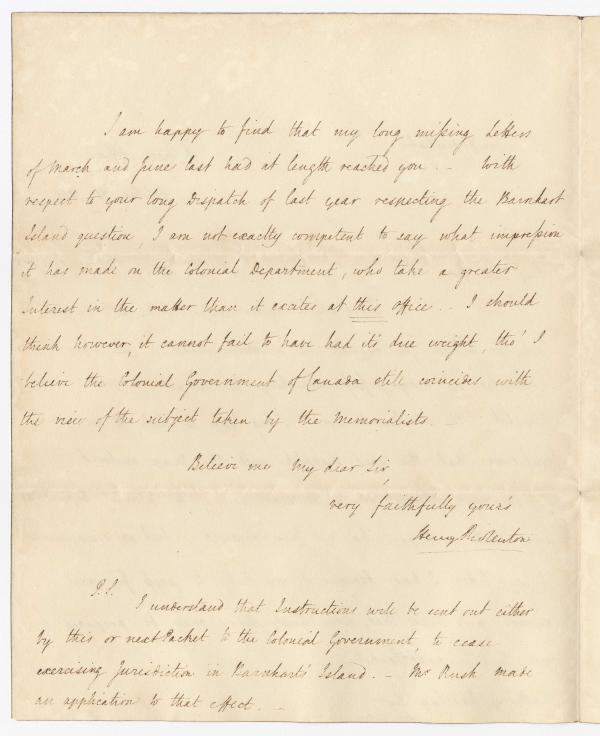 I am happy to find that my long missing Letters
of March and June last had at length reached you. – With
respect to your long Dispatch of last year respecting the Barnhart
Island question, I am not exactly competent to say what impression
it has made on the Colonial Department, who take a greater
Interest in the matter than it excites at this office. – I should
think however, it cannot fail to have had it's due weight, tho' I
believe the Colonial Government of Canada still coincides with
the view of the subject taken by the Memorialists. –
Believe me My dear Sir,
very faithfully your's
Henry
P.S.
I understand that Instructions will be sent out either
by this or next Packet to the Colonial Government, to cease
exercising Jurisdiction in Barnharts' Island. – Mr Rush made
an application to that effect. –